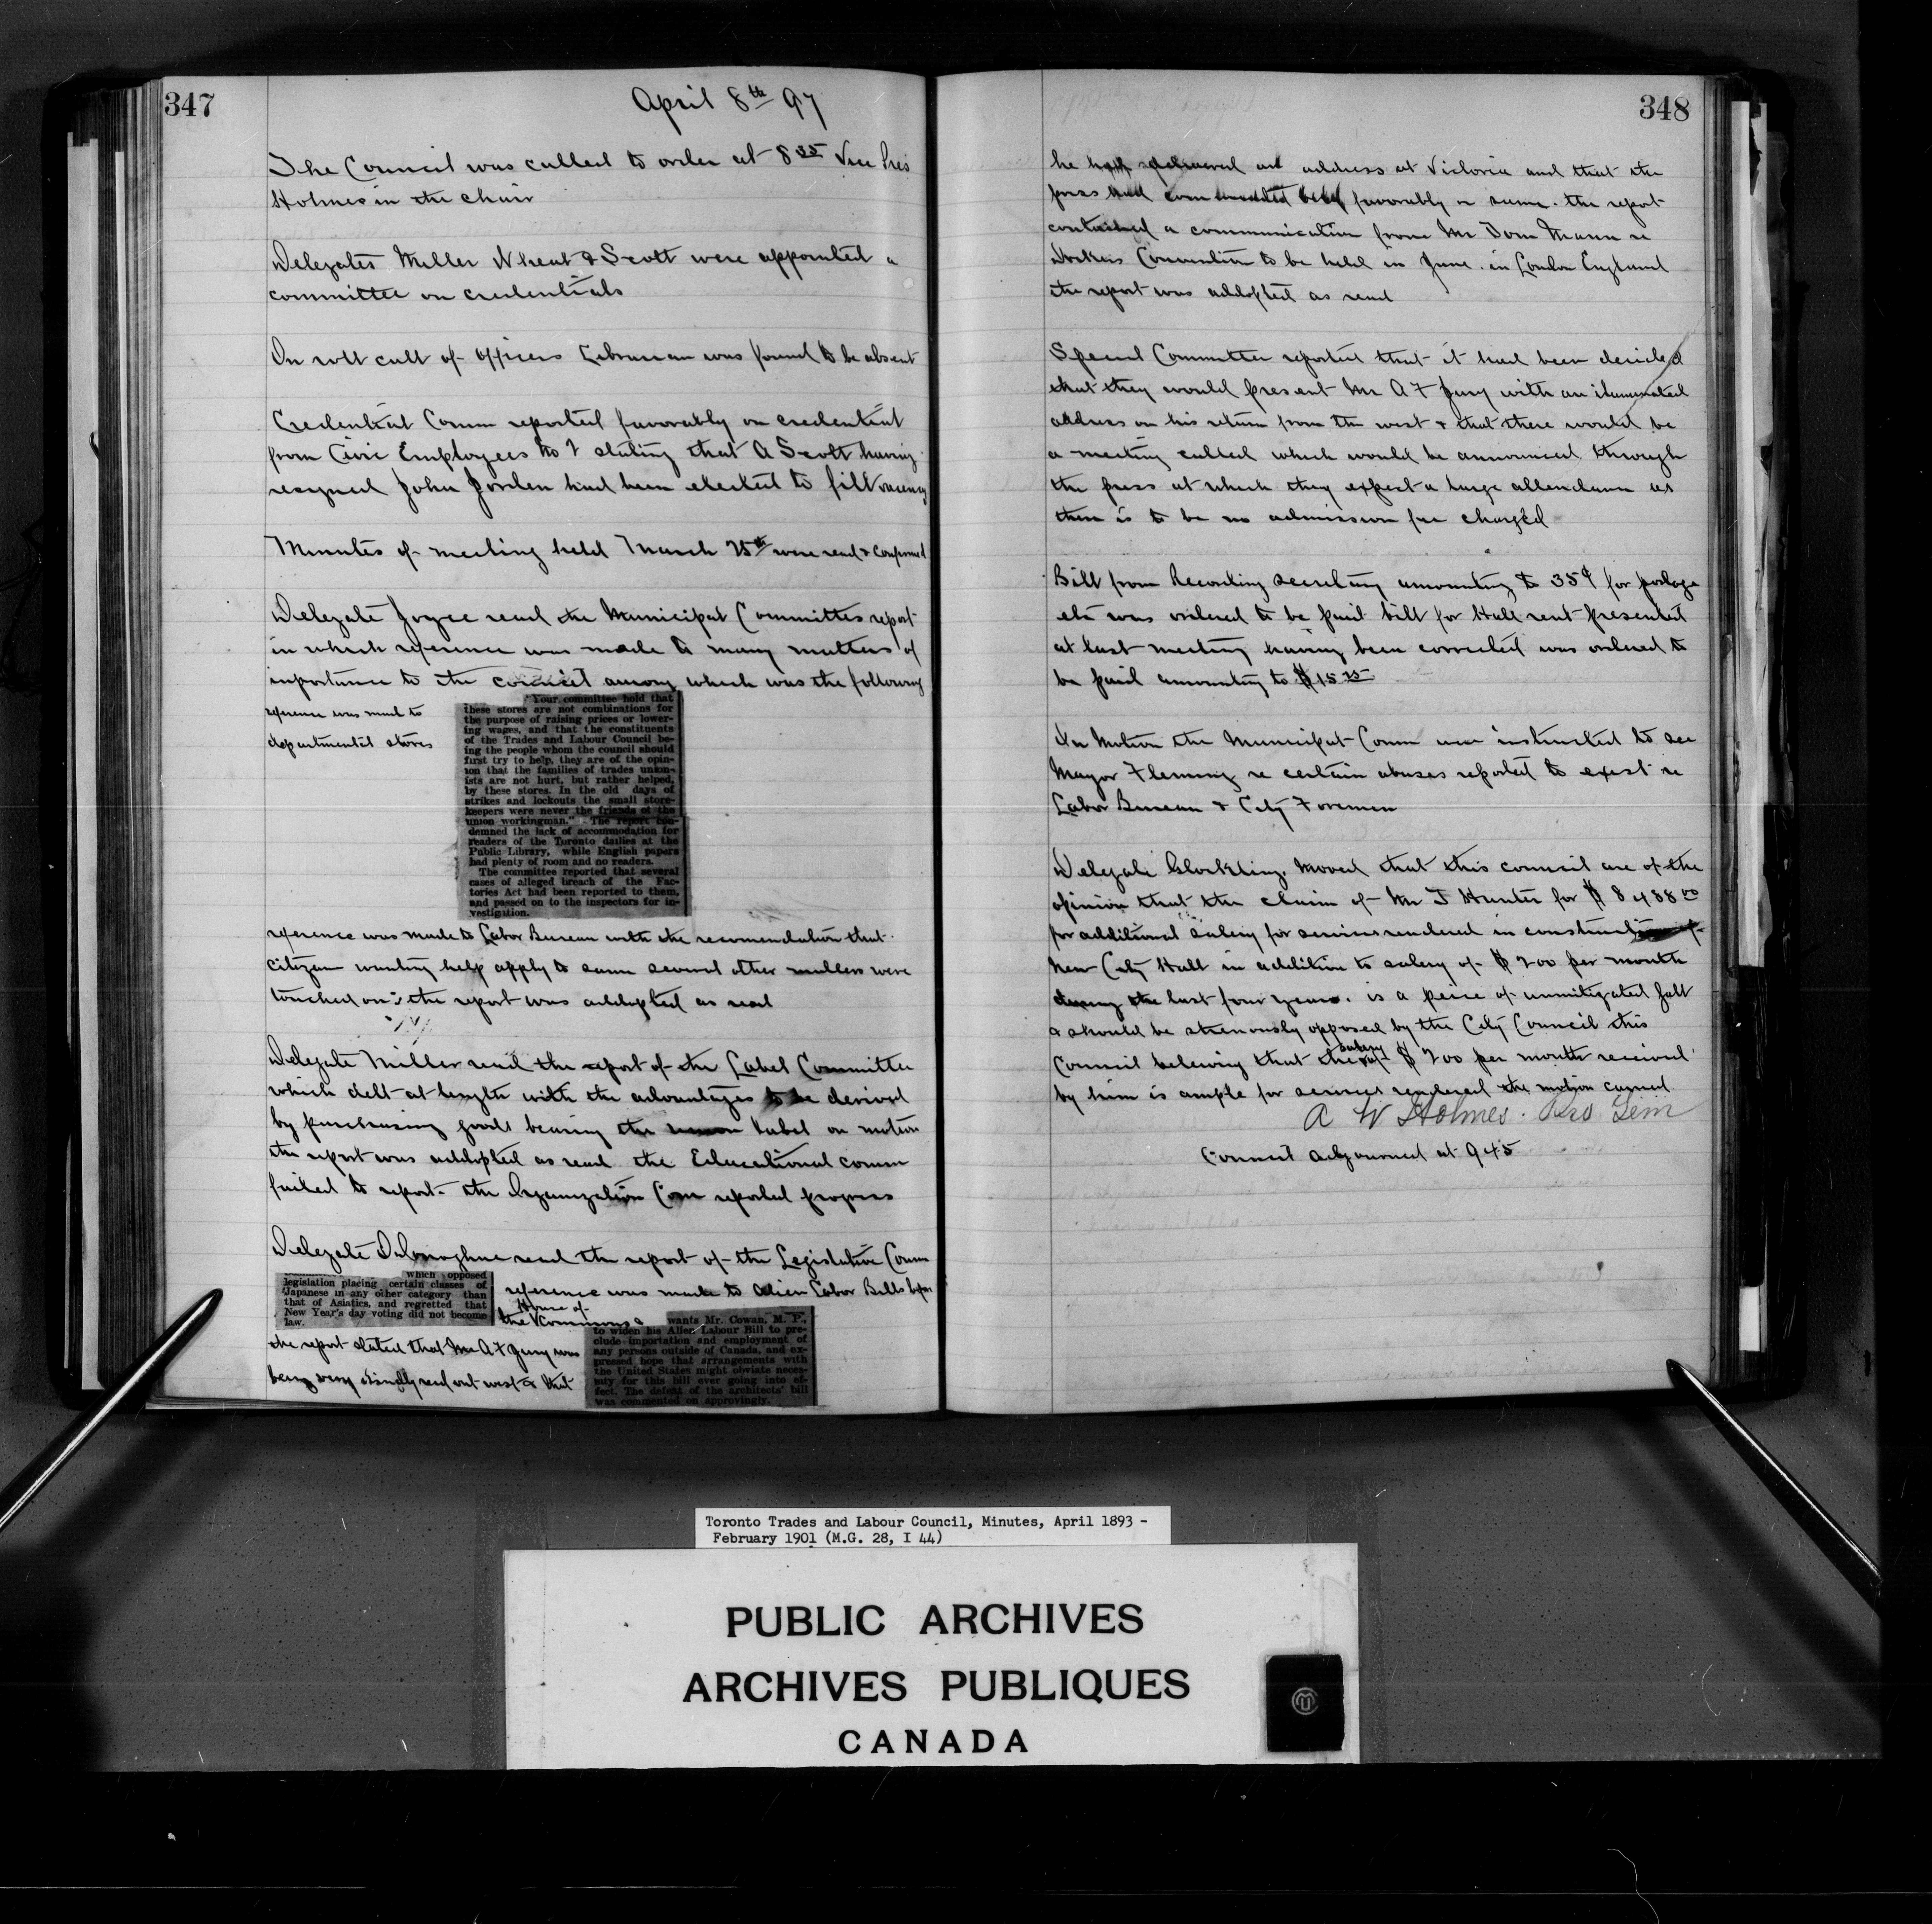 347
April 8th 97
The Council was called to order at 8 35 Vice Pres
Holmes in the chair
Delegates Miller Wheat & Scott were appointed a
committee on credentials
On roll call of officers Librarian was found to be absent
Credential Comm reported favorably on credential
from Civic Employees No 2 stating that A Scott having
resigned John Jorden had been elected to fill vacancy
Minutes of meeting held March 25th were read & confirmed
Delegate Joyce read the Municipal Committes report
in which reference was made to many matters of
importance to the council among which was the following
reference was mad to
departmental stores
"Your committee hold that
these stores are not combinations for
the purpose of raising prices or lower-
ing wages, and that the constituents
of the Trades and Labour Council be-
ing the people whom the council should
first try to help, they are of the opin-
ion that the families of trades union-
ists are not hurt, but rather helped,
by these stores. In the old days of
strikes and lockouts the small store-
keepers were never the friends of the
union workingman." The report con-
demned the lack of accommodation for
readers of the Toronto dailies at the
Public Library, while English papers
had plenty of room and no readers.
The committee reported that several
cases of alleged breach of the Fac-
tories Act had been reported to them,
and passed on to the inspectors for in-
vestigation.
reference was made to Labor Bureau with the recomendation that
citizen wanting help apply to same several other matters were
touched on the report was addopted as read
Delegate Miller read the report of the Label Committee
which delt at length with the advantages to be derived
by purchasing goods bearing the union Label on motion
the report was addopted as read the Educational comm
failed to report. the Organization Com reported progress
Delegate ODonoghue read the report of the Legislative Comm
which opposed
legislation placing certain classes of
Japanese in any other category than
that of Asiatics, and regretted that
New Year's day voting did not become
law.
reference was made to Alien Labor Bills before
House of
the Commons
wants Mr. Cowan, M. P.,
to widen his Alien Labour Bill to pre-
clude importation and employment of
any persons outside of Canada, and ex-
pressed hope that arrangements with
the United States might obviate neces-
sity for this bill ever going into ef-
fect. The defeat of the architects' bill
was commented on approvingly.
the report stated that Mr A F Jury was
being very kindly recd out west & that
348
he had delivered an address at Victoria and that the
press had favorably on same. the report
contained a communication from Mr Tom Mann re
Workers Convention to be held in June in London England
the report was addopted as read
Special Committee reported that it had been decided
that they would present Mr A F Jury with an iluminated
address on his return from the west & that there would be
a meeting called which would be announced through
the press at which they expect a large attendance as
there is to be no admission fee charged
Bill from Recording Secretary amounting to 35¢ for postage
etc was ordered to be paid bill for Hall rent presented
at last meeting having been corrected was ordered to
be paid amounting to $15 25
On Motion the Municipal Comm was instructed to see
Mayor Fleming re certain abuses reported to exist re
Labor Bureau & City Foremen
Delegate Glockling. Moved that this council are of the
opinion that the claim of Mr J Hunter for $ 8488 00
for additional salery for services rendered in construction of
New City Hall in addition to salery of $ 200 per month
during the last four years. is a peice of unmitigated gall
& should be strenously opposed by the City Council this
Council beleiving that the salery of $ 200 per month received
by him is ample for services rendered the motion carried
A W Holmes. Pres Tem
Council adjourned at 9 45
Toronto Trades and Labour Council, Minutes, April 1893 -
February 1901 (M.G. 28, I 44)
PUBLIC ARCHIVES
ARCHIVES PUBLIQUES
CANADA